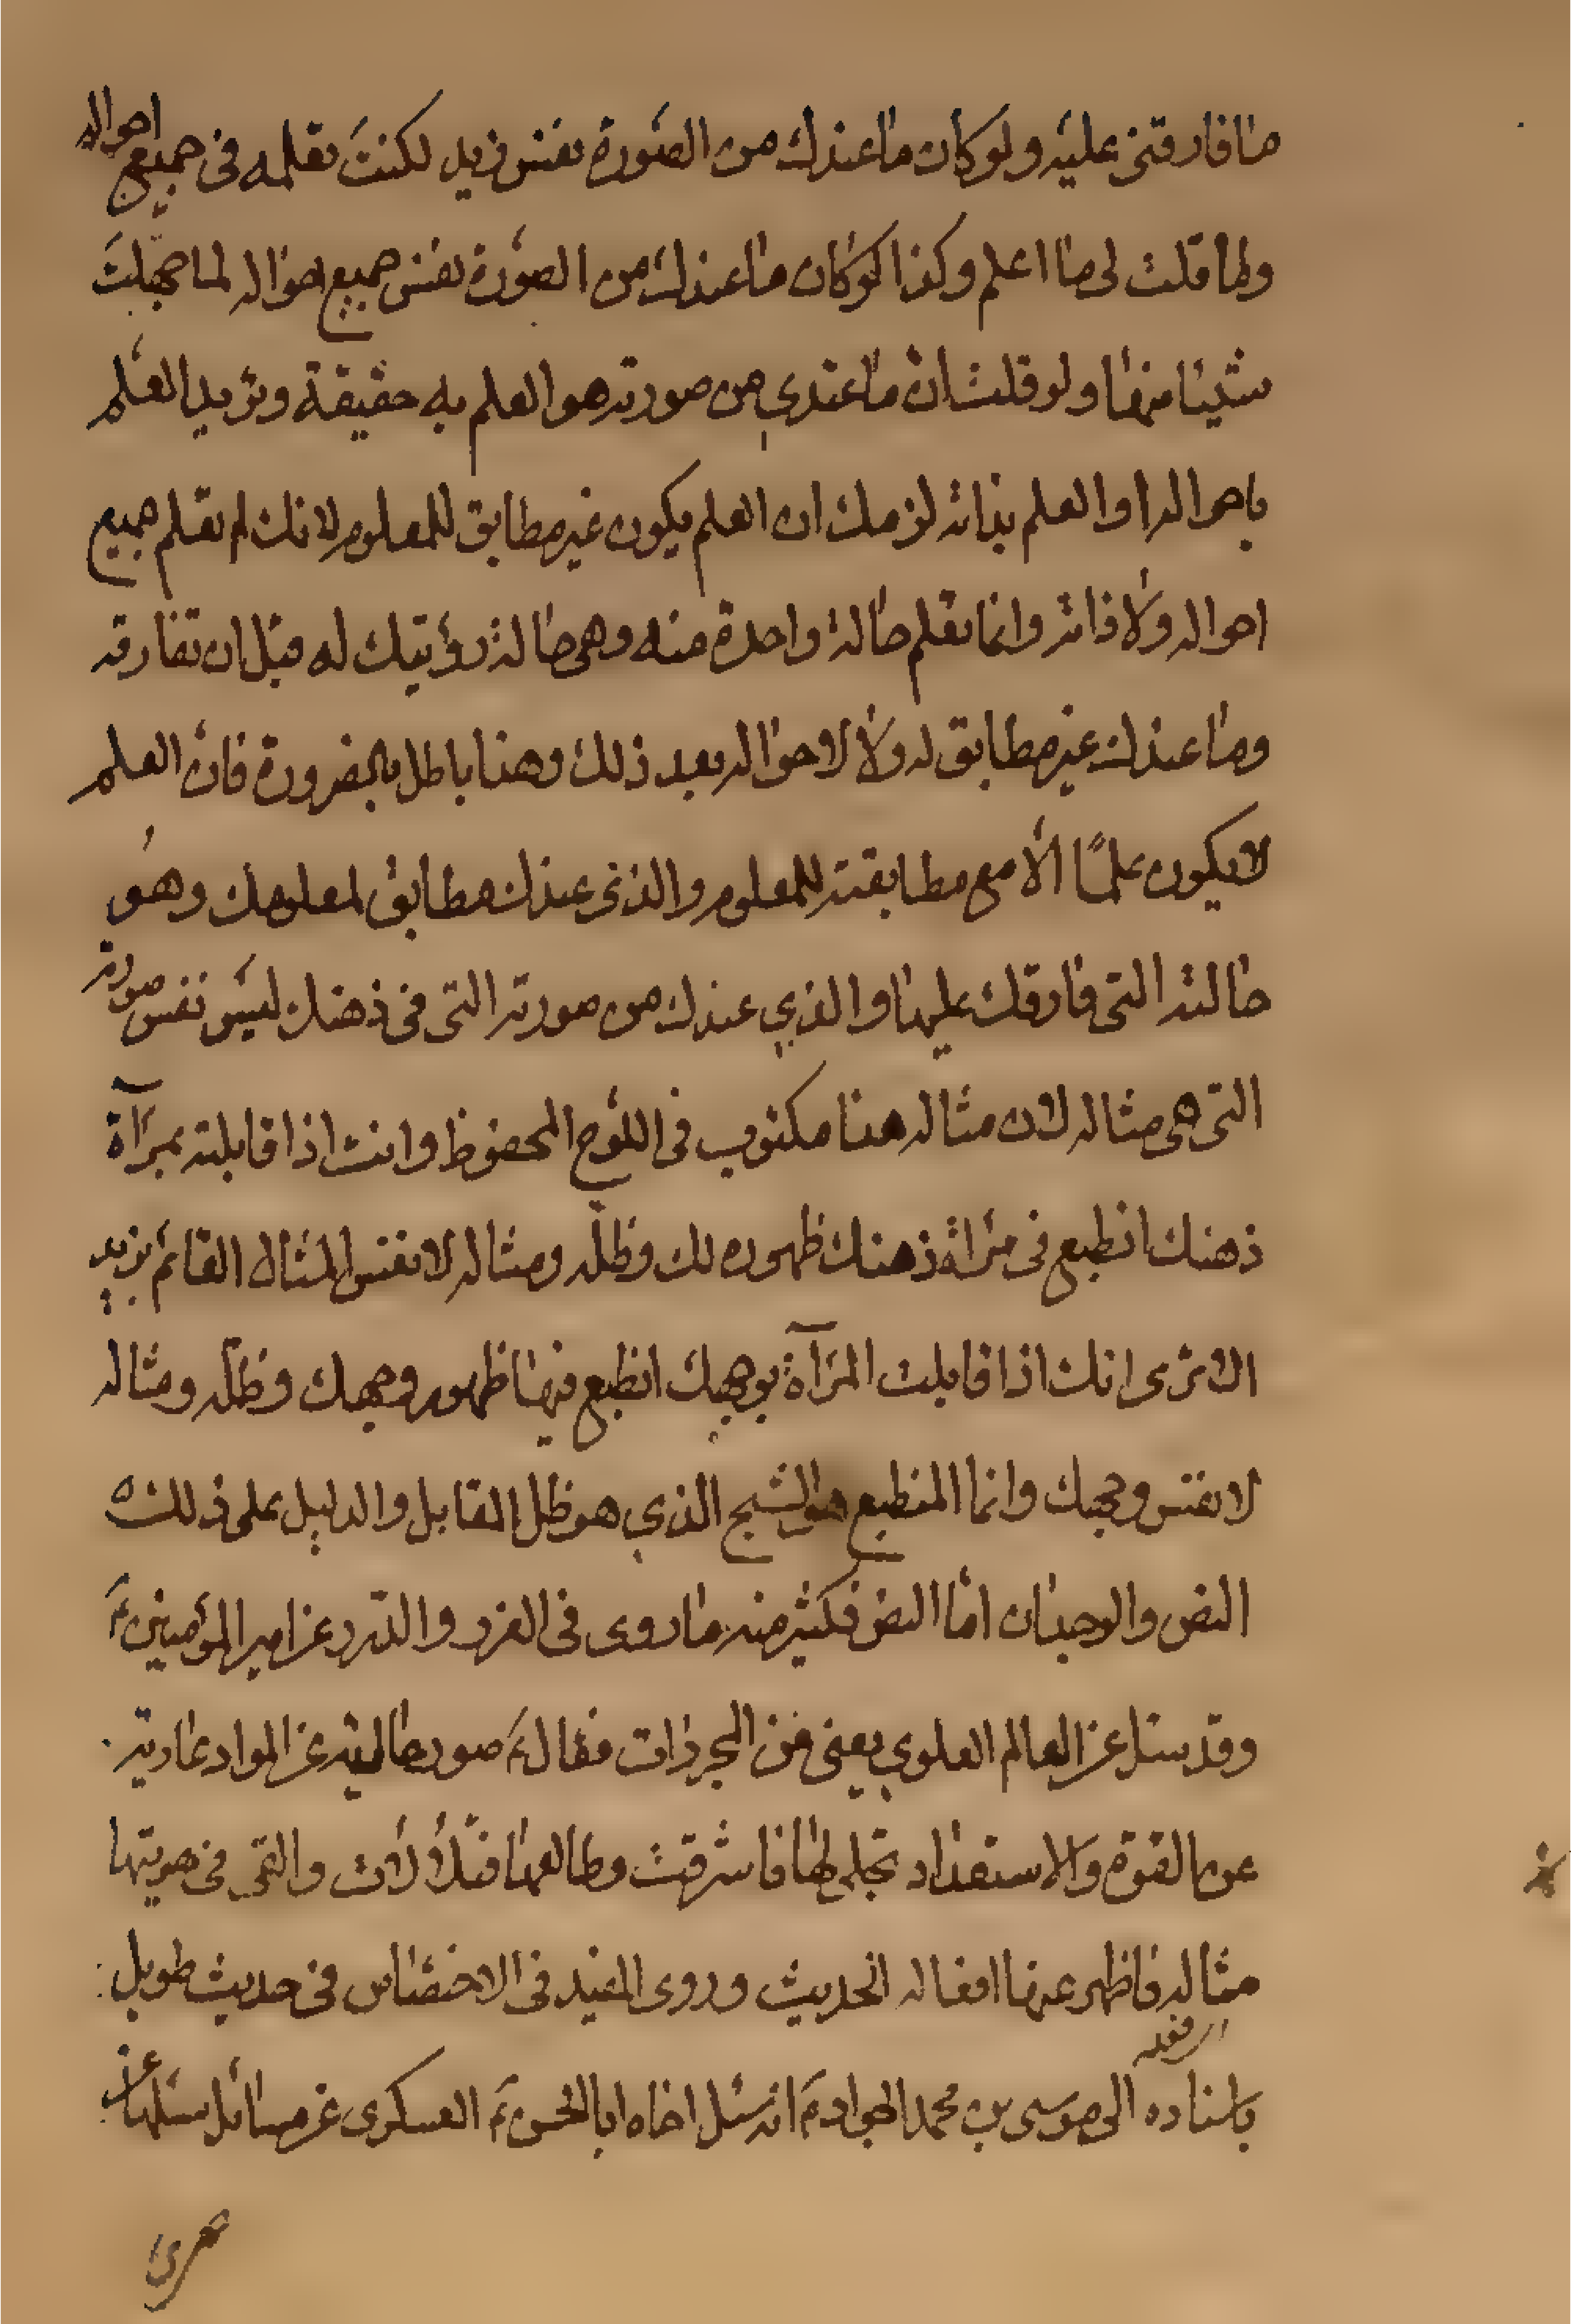 ما فارقتنى عليه ولو كان ما عندك من الصورة نفس زيد لكنت تعلمه فى جميع احواله
ولما قلت لى ما اعلم وكذا لو كان ما عندك من الصورة نفس جميع احواله لما جهلت
شيئا منها ولو قلت ان ما عندي من صورته هو العلم به حقيقة وتريد العلم
باحواله او العلم بذاته لزمك ان العلم يكون غير مطابق للمعلوم لانك لم تعلم جميع
احواله ولا ذاته وانما تعلم حالة واحدة منه وهى حالة رؤيتك له قبل ان تفارقه
وما عندك غير مطابق له ولا لاحواله بعد ذلك وهذا باطل بالضرورة فان العلم
لا يكون علمًا الا مع مطابقته للمعلوم والذى عندك مطابق لمعلومك وهو
حالته التى فارقك عليها والذي عندك من صورته التى فى ذهنك ليس نفس صورته
التى هى مثاله لان مثاله هنا مكتوب فى اللوح المحفوظ وانت اذا قابلته بمرآة
ذهنك انطبع فى مرآة ذهنك ظهوره لك وظله ومثاله لا نفس المثال القائم بزيد
الا ترى انك اذا قابلت المرآة بوجهك انطبع فيها ظهور وجهك وظله ومثاله
لا نفس وجهك وانما المنطبع هو الشبح الذي هو ظل المقابل والدليل على ذلك
النص والوجدان اما النص فكثير منه ما روى فى الغرر والدرر عن امير المؤمنين ع
وقد سئل عن العالم العلوي يعنى عن المجردات فقال ع صور عالية عن المواد عارية
عن القوة والاستعداد تجلى لها فاشرقت وطالعها فتلألأت والقى فى هويتها
مثاله فاظهر عنها افعاله الحديث وروى المفيد فى الاختصاص فى حديث طويل
باسناده
الى موسى بن محمد الجواد ع انه سئل اخاه ابا الحسن ع العسكرى عن مسائل سئله عنها